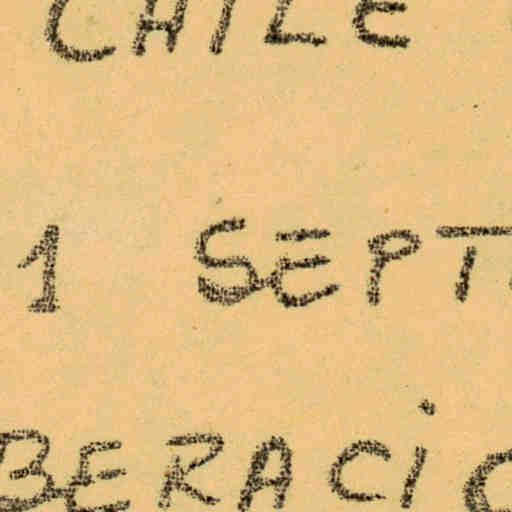 CHILE
1 SEPT
BERACiO